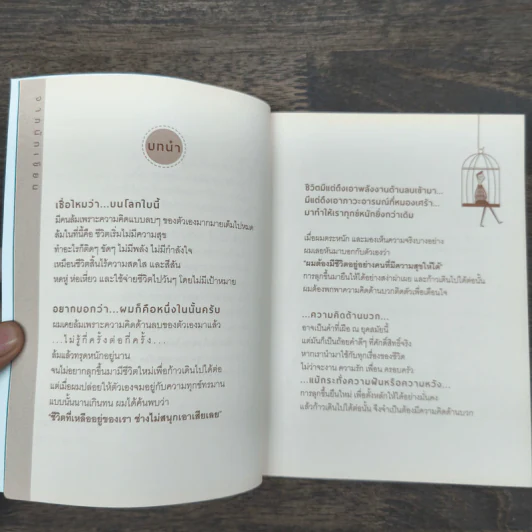 จากนักเขียน
บทนำ
เชื่อไหมว่า...บนโลกใบนี้
มีคนล้มเพราะความคิดแบบลบๆ ของตัวเองมากมายเต็มไปหมด
ล้มในที่นี้คือ ชีวิตเริ่มไม่มีความสุข
ทำอะไรก็ติดๆ ขัดๆ ไม่มีพลัง ไม่มีกำลังใจ
เหมือนชีวิตสิ้นไร้ความสดใส และสีสัน
หดหู่ ห่อเหี่ยว และใช้จ่ายชีวิตไปวันๆ โดยไม่มีเป้าหมาย
อยากบอกว่า...ผมก็คือหนึ่งในนั้นครับ
ผมเคยล้มเพราะความคิดด้านลบของตัวเองมาแล้ว
...ไม่รู้กี่ครั้งต่อกี่ครั้ง...
ล้มแล้วทรุดหนักอยู่นาน
จนไม่อยากลุกขึ้นมามีชีวิตใหม่เพื่อก้าวเดินไปได้ต่อ
แต่เมื่อผมปล่อยให้ตัวเองจมอยู่กับความทุกข์ทรมาน
แบบนั้นนานเกินทน ผมได้ค้นพบว่า
"ชีวิตที่เหลืออยู่ของเรา ช่างไม่สนุกเอาเสียเลย"
ชีวิตมีแต่ดึงเอาพลังงานด้านลบเข้ามา...
มีแต่ดึงเอาภาวะอารมณ์ที่หมองเศร้า...
มาทำให้เราทุกข์หนักยิ่งกว่าเดิม
เมื่อผมตระหนัก และมองเห็นความจริงบางอย่าง
ผมเลยหันมาบอกกับตัวเองว่า
"ผมต้องมีชีวิตอยู่อย่างคนที่มีความสุขให้ได้"
การลุกขึ้นมายืนให้ได้อย่างสง่าผ่าเผย และก้าวเดินไปให้ได้ต่อนั้น
ผมต้องพกพาความคิดด้านบวกติดตัวเพื่อเตือนใจ
...ความคิดด้านบวก...
อาจเป็นคำที่เฝือ ณ ยุคสมัยนี้
แต่มันก็เป็นถ้อยคำดีๆ ที่ศักดิ์สิทธิ์จริง
หากเรานำมาใช้กับทุกเรื่องของชีวิต
ไม่ว่าจะงาน ความรัก เพื่อน ครอบครัว
...แม้กระทั่งความฝันหรือความหวัง...
การลุกขึ้นยืนใหม่ เพื่อตั้งหลักให้ได้อย่างมั่นคง
แล้วก้าวเดินไปให้ได้ต่อนั้น จึงจำเป็นต้องมีความคิดด้านบวก